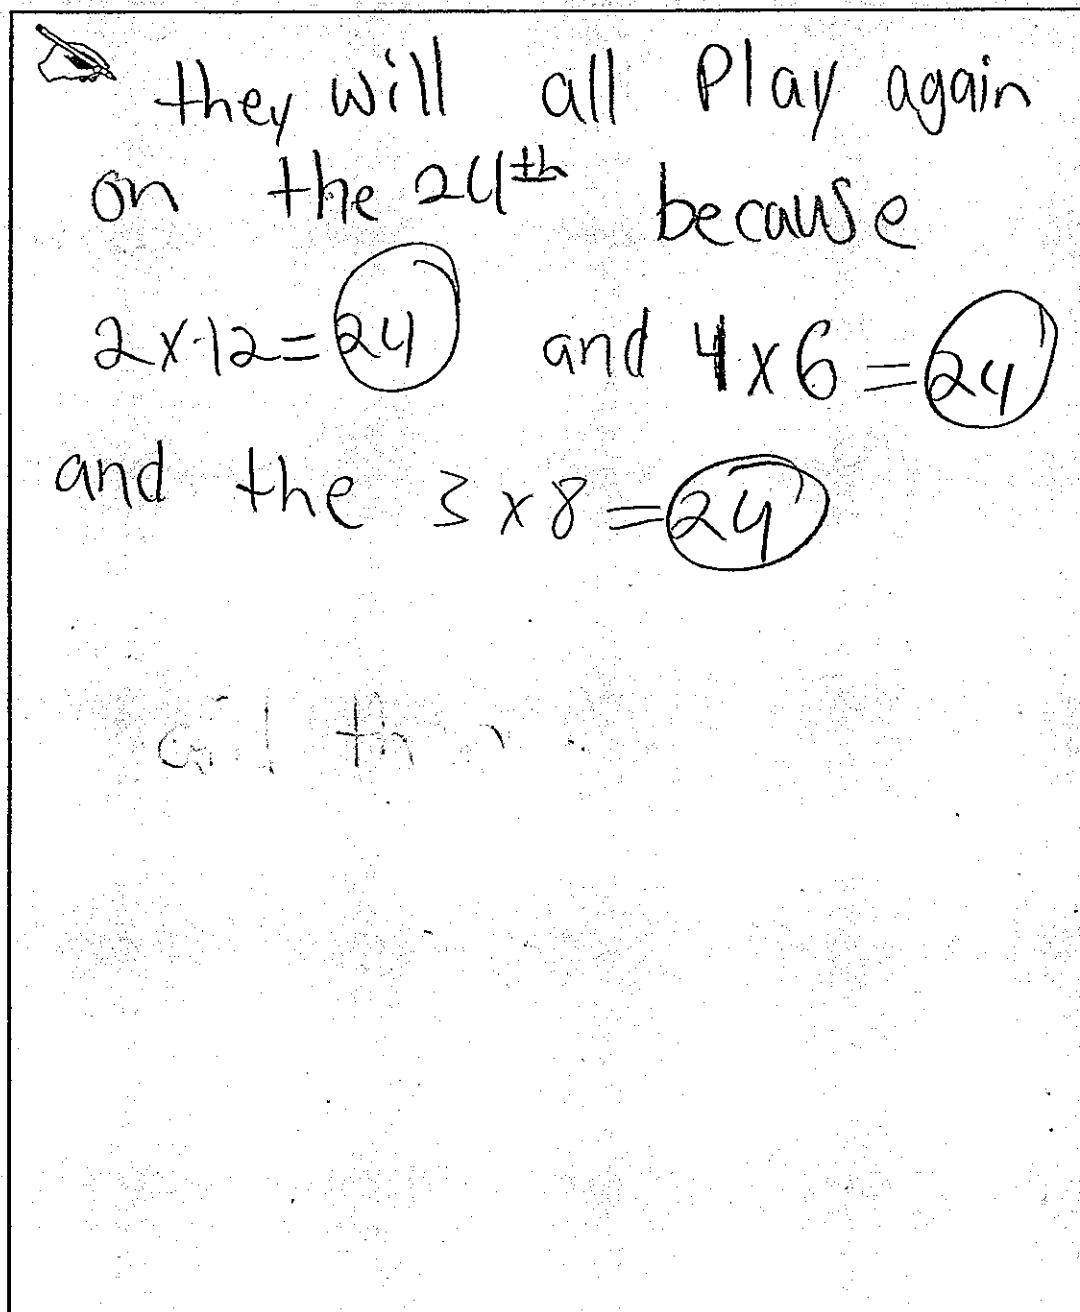 they will all Play again
on the 24th because
2x12=24 and 4x6=24
and the 3x8=24